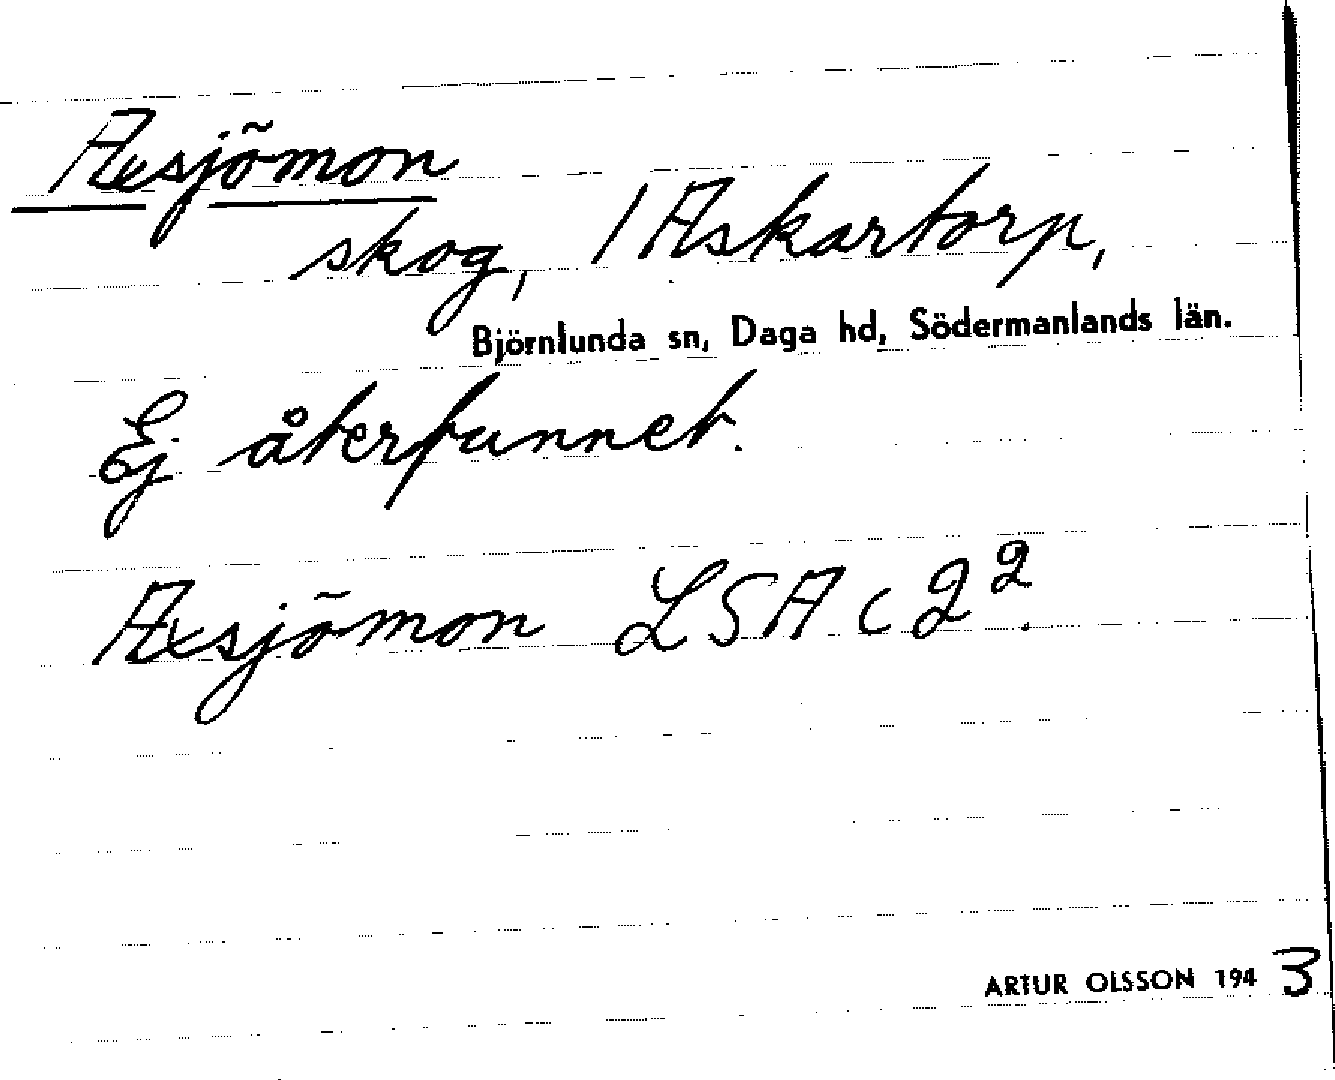 Axsjömon
skog, 1 Askartorp,
Björnlunda sn, Daga hd, Södermanlands län.
Ej återfunnet.
Axsjömon LSA c 2².
ARTUR OLSSON 1943